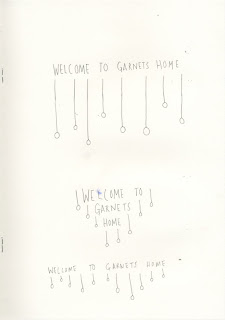 WELCOME TO GARNETS HOME
WELCOME TO
GARNETS
HOME
WELCOME TO GARNETS HOME